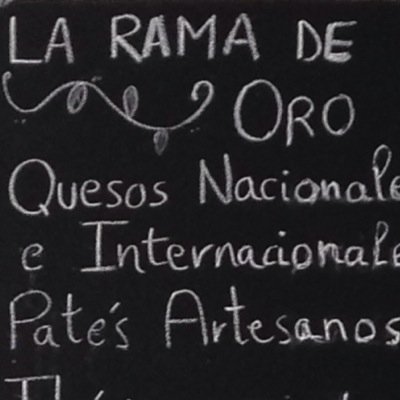 LA RAMA DE
ORO
Quesos Nacionale
e Internacionale
Patés Artesanos